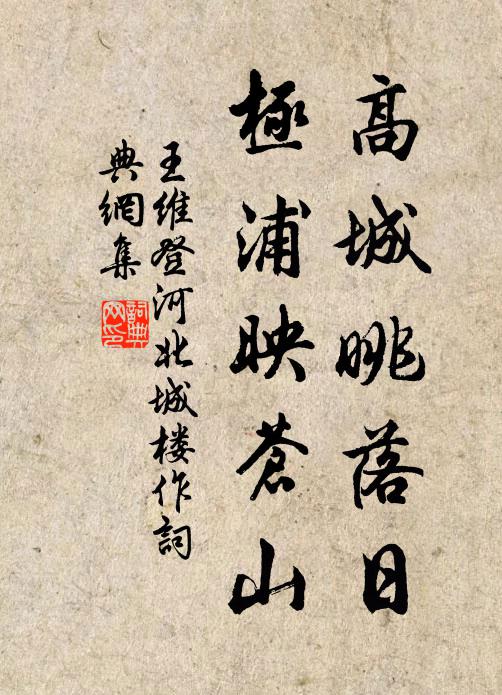 高城眺落日
極浦映蒼山
王維登河北城楼作詞
典網集
詞典
网印